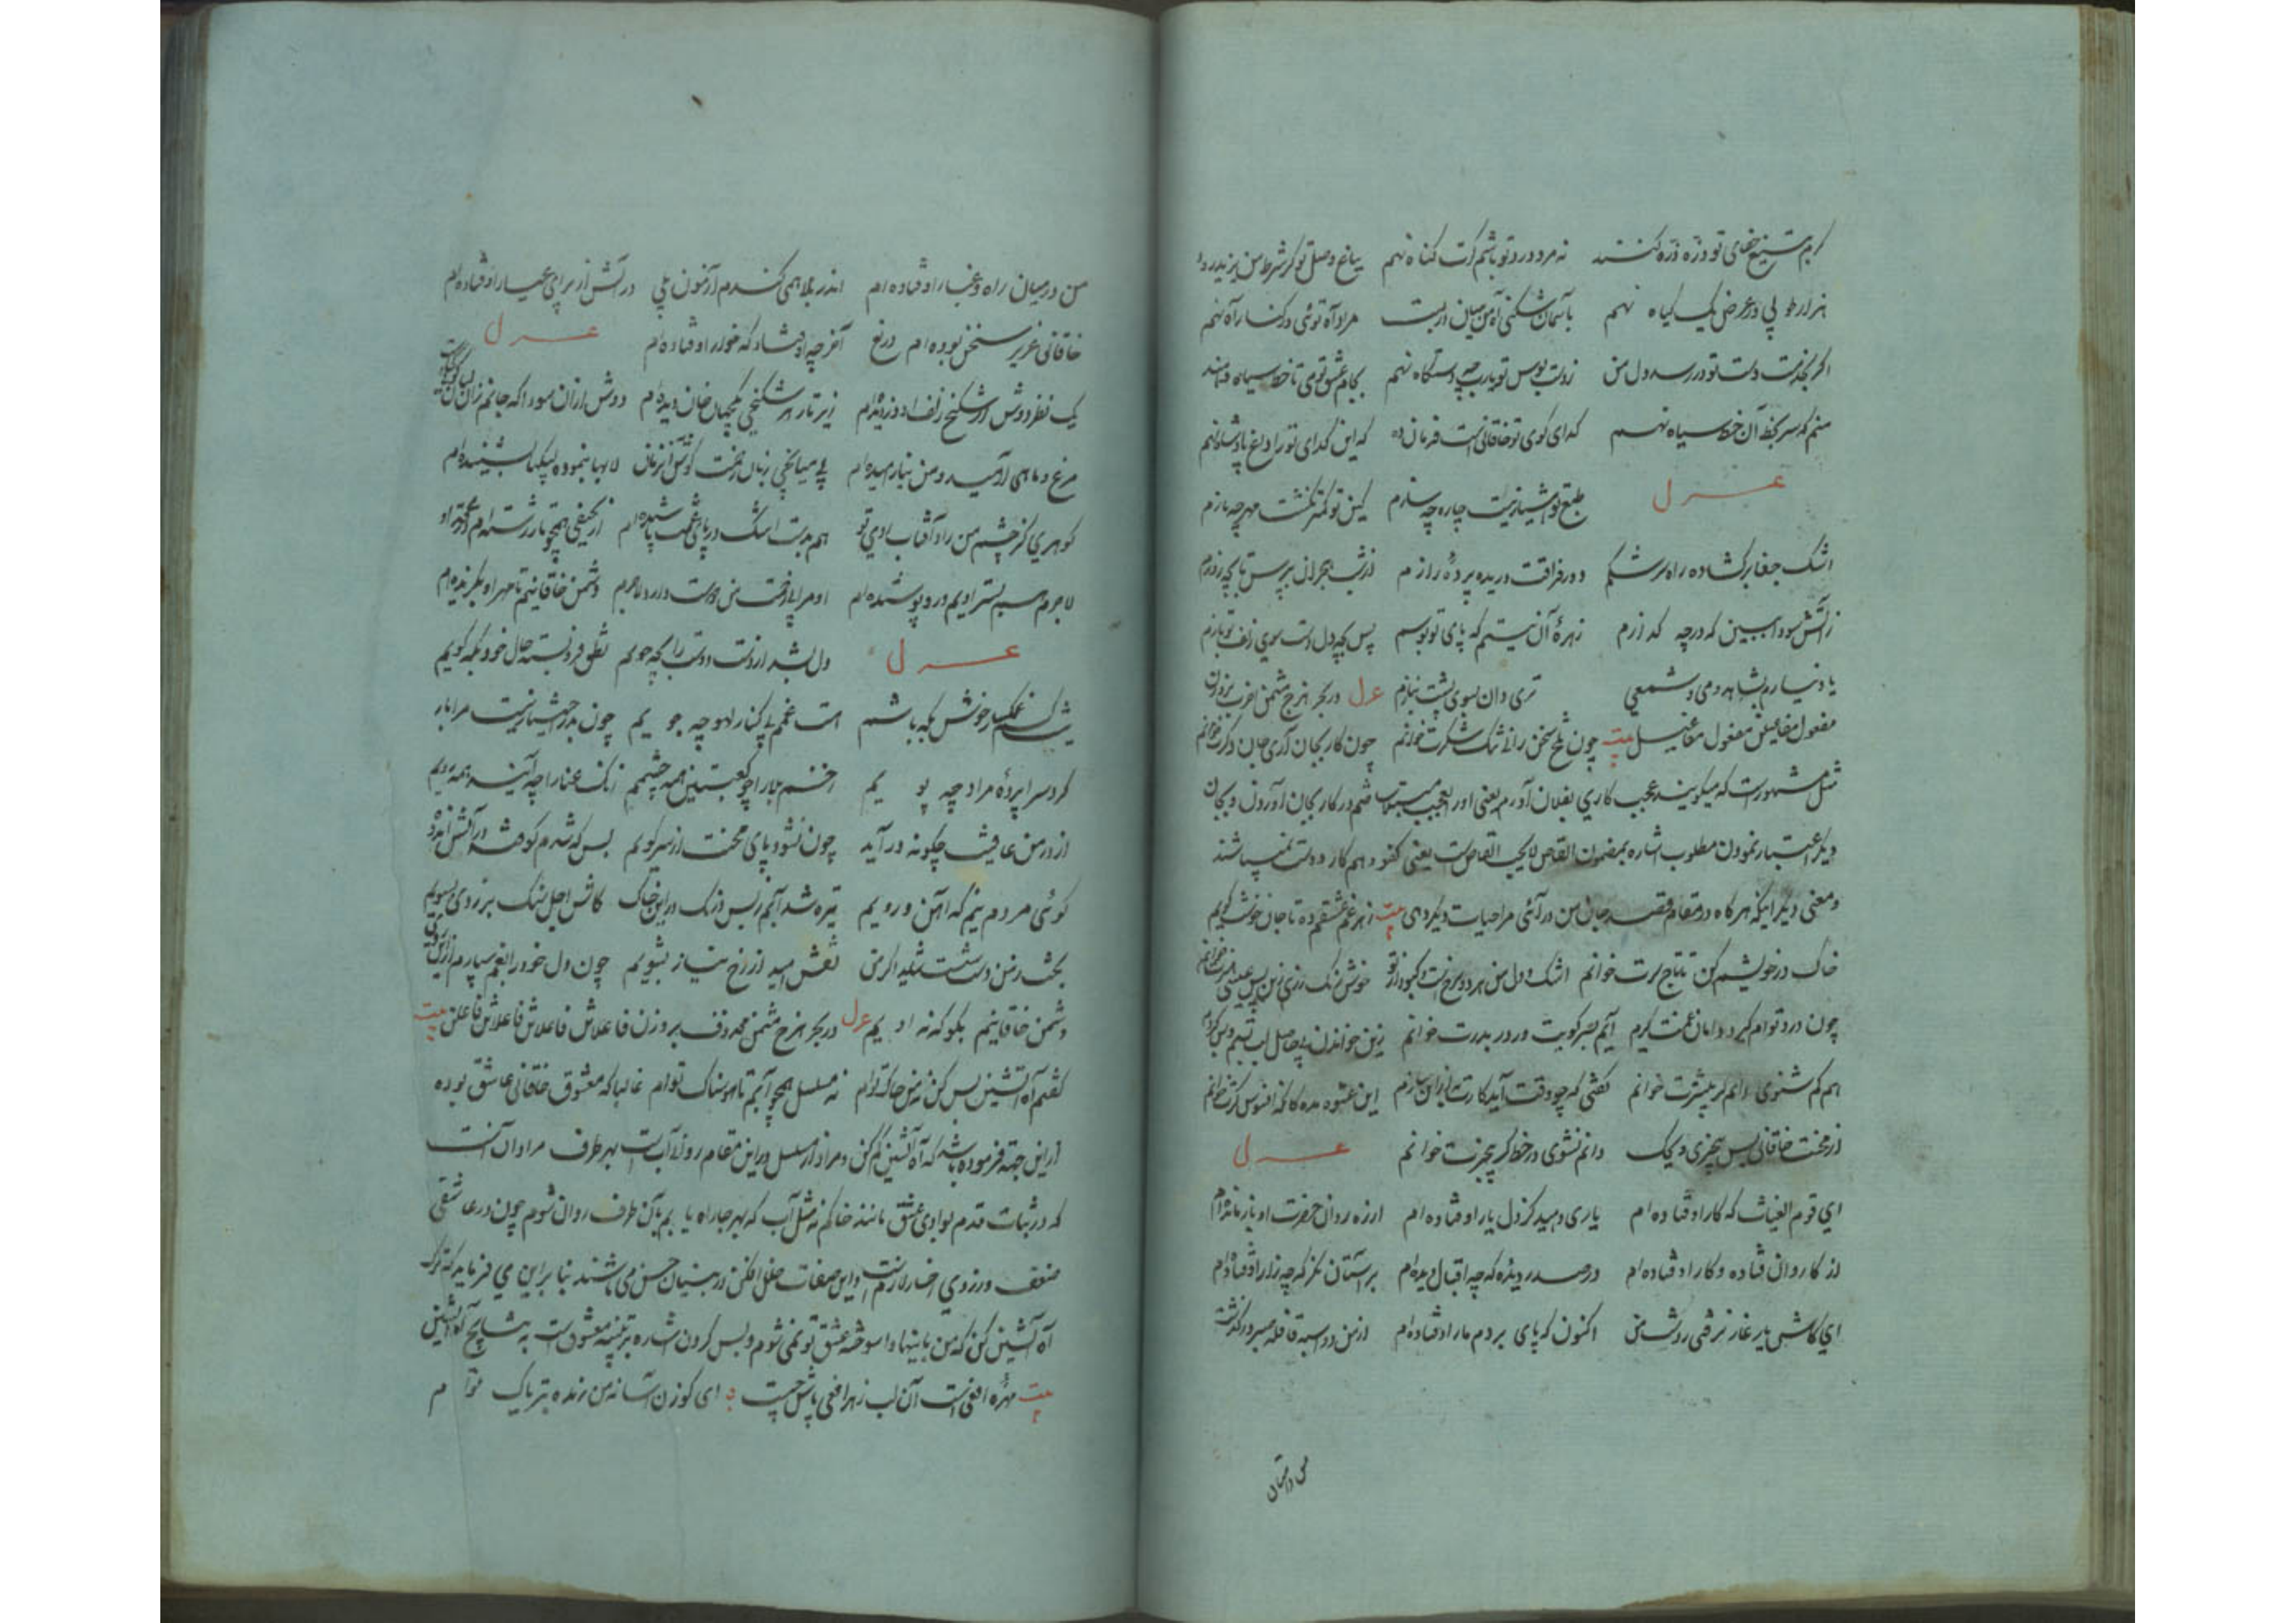 گرم بتیغ جفای تو ذره ذره کنند نه مرد درد تو باشم گرت گناه نهم بباغ وصل تو گر شرط من
هزار طوبی در عرض یک گیاه نهم باسمان شکنی آه من میان دربست مراد آه توئی در کنار آه نهم
اگر بخدمت دست تو در رسد دل من ز دست بوس تو یارب چه دستگاه نهم بکام عشق تو می تا خط سیاه
منم که سر بخط آن خط سیاه نهم گدای کوی تو خاقانی است فرمان ده که این گدای ترا داغ پادشاه نهم
غزل
طبع تو دمساز نیست چاره چه سازم کین تو کمتر نگشت مهر چه بازم
اشک جفا برکشاده راه سرشکم دور فراقت دریده پرده رازم از شب هجران بپرس تا بچه روزم
زآتش سودا ببین که در چه گدازم زهره آن نیستم که پای تو بوسم پس بچه دل دست سوی زلف تو یازم
یاد نیارم بشاهد و می و شمعی غزل در بحر هزج مثمن اخرب بر وزن
مفعول مفاعیلن مفعول مفاعیلن بیت چون تلخ سخن رانی تنگ شکرت خوانم چون کار بجان آری جان دگرت خوانم
مثل مشهورست که میگویند عجب کاری بفلان آوردم یعنی او را بعجب مبتلا ساختم در کار بجان آوردن و بجان
دیگر اعتبار نمودن مطلوب اشاره بمضمون القاص لایحب القاص است یعنی کفو و هم کار دوست نمیباشد
و معنی دیگر اینکه هرگاه در مقام قصد جان من درآئی مرا حیات دیگر دهی بیت زهر غم عشقم ده تا جان خوشت گویم
خاک در خویشم کن تا تاج سرت خوانم اشک و دل من هر دو سرخست و کبود از تو خوش رنگ رزی زین پس عیسی هنرت خوانم
چون درد توام گیرد دامان غمت گیرم آیم بسر کویت وز در بدرت خوانم زین خواندن بی حاصل لب بستم و بس کردم
هم کم شنوی دانم گر بیشترت خوانم گفتی که چو وقت آید کارت به ازین سازم این عشوه مده کانگه افسوس گرت خوانم
از محنت خاقانی بس بیخبری ویحک دانم نشوی در خط گر بیخبرت خوانم غزل
ای قوم الغیاث که کار اوفتاده ام یاری دهید کز دل یار اوفتاده ام از ره روان حضرت او باز مانده ام
از کاروان فتاده و کار اوفتاده ام در صدر دیده که چه اقبال دیده ام بر آستان نگر که چه زار اوفتاده ام
ای کاش یار غار نرفتی ز دست من اکنون که پای بر دم مار اوفتاده ام از من دو اسبه قافله صبر درگذشت
من در میان راه و غبار اوفتاده ام اندر بلا همی کندم آزمون بلی در آتش از برای عیار اوفتاده ام
خاقانی عزیز سخن بوده ام دریغ آخر چه اوفتاد که خوار اوفتاده ام غزل
یک نظر دوش از شکنج زلف او دزدیده ام زیر تار هر شکنجی یکجهان جان دیده ام دوش ازان سودا که جانم زان
مرغ و ماهی آرمید و من نیارامیده ام بی میانجی زبان و زحمت گوش لابها بنموده لبیکها بشنیده ام
گوهری کز چشم من زاد آفتاب روی تو هم بدست اشک در پای غمت پاشیده ام از نحیفی همچو تار رشته ام
لاجرم هم بستر اویم در او پوشیده ام او مرا بفروخت دشمن خاقانیم تا مهر او بگزیده ام
غزل
دل بشد از دست دوست را بچه جویم نطق فروبسته حال خود بکه گویم
نیست کس غمگسار خوش بکه باشم هست غم بی کنار لهو چه جویم چون بدر اختیار نیست مرا بار
گرد سراپرده مراد چه پویم اختم بیدار را چو کعبتین همه چشمم زنگ عنا را چه آینه همه رویم
از در من عافیت چگونه در آید چون نشود پای محنت از سر کویم بس که شدم کوفته در آتش اندوه
گوئی مردم نیم که آهن و رویم تیره شد آبم ز بس درنگ در این خاک کاش اجل سنگ برزدی بسبویم
بخت ز من دست شست شاید اگر من نقش امید از رخ نیاز بشویم چون دل خود را بغم سپارم ازین پس
دشمن خاقانیم بگو که نه اویم غزل در بحر هزج مثمن محذوف بر وزن فاعلاتن فاعلاتن فاعلاتن فاعلن بیت
گفتم آه آتشین بس کن نه من خاک توام نه مسلسل همچو آبم تا هوسناک توام غالبا که معشوق خاقانی عاشق بوده
ازین جهت فرموده باشد که آه آتشین کم کن و مراد از مسلسل در این مقام روانی آب است بهر طرف مراد آن است
که در ثبات قدم بوادی عشق مانند خاکم نه مثل آب که بهر جا راه یابم بآن طرف روان شوم چون در عاشقی
ضعف و زردی رخسار لازم است و این صفات خلل افکن در بنیان حسن می باشند بنابراین می فرماید که ترک
آه آتشین کن که من باینها واسوخته عشق تو نمی شوم و بس کردن اشاره بر تنبیه معشوق است
بیت مهره افعی است آن لب زهر افعی پاش چیست ای گوزن آسا نه من زنده بتریاک توام